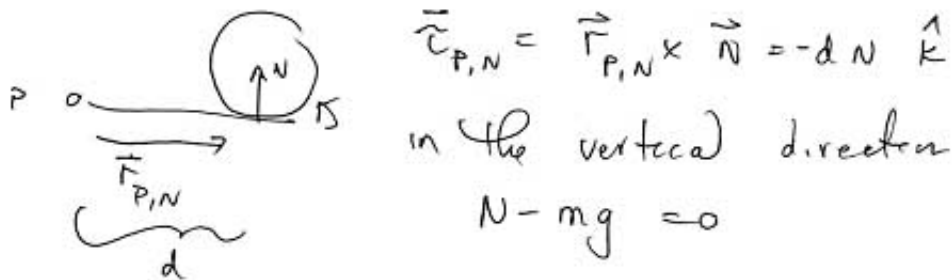 τ⃗_{P,N} = r⃗_{P,N} × N⃗ = -d N k̂
P
N
r⃗_{P,N}
in the vertical direction
N - mg = 0
d